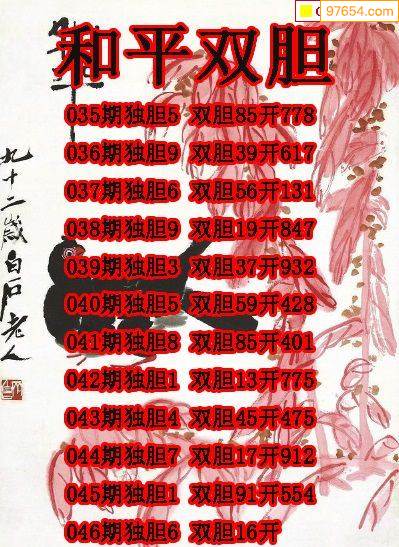 97654.com
和平双胆
035期独胆5 双胆85开778
036期独胆9 双胆39开617
037期独胆6 双胆56开131
038期独胆9 双胆19开847
039期独胆3 双胆37开932
040期独胆5 双胆59开428
041期独胆8 双胆85开401
042期独胆1 双胆13开775
043期独胆4 双胆45开475
044期独胆7 双胆17开912
045期独胆1 双胆91开554
046期独胆6 双胆16开
九十二岁白石老人